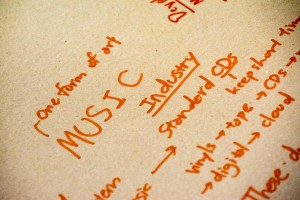 One form of art
MUSIC
Industry
→ Standard CDs
keep short
vinyls → tape → CDs →
→ digital → cloud
These